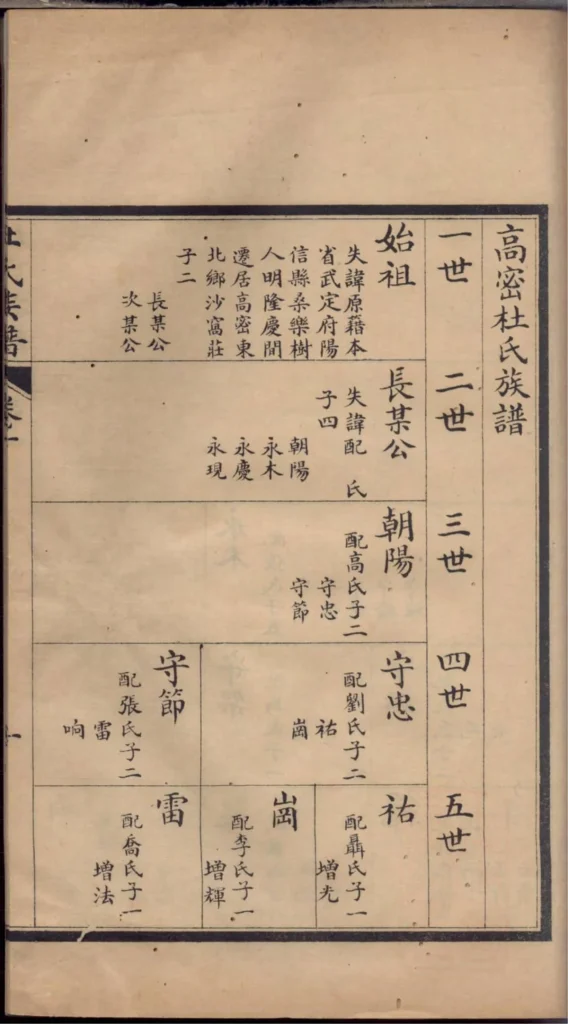 高密杜氏族譜
一世
始祖
失諱原籍本
省武定府陽
信縣桑樂樹
人明隆慶間
遷居高密東
北鄉沙窩莊
子二
長某公
次某公
二世
長某公
失諱配 氏
子四
朝陽
永木
永慶
永現
三世
朝陽
配高氏子二
守忠
守節
四世
守忠
配劉氏子二
祐
崗
守節
配張氏子二
雷
响
五世
祐
配聶氏子一
增光
崗
配李氏子一
增輝
雷
配喬氏子一
增法
杜氏族譜
卷一